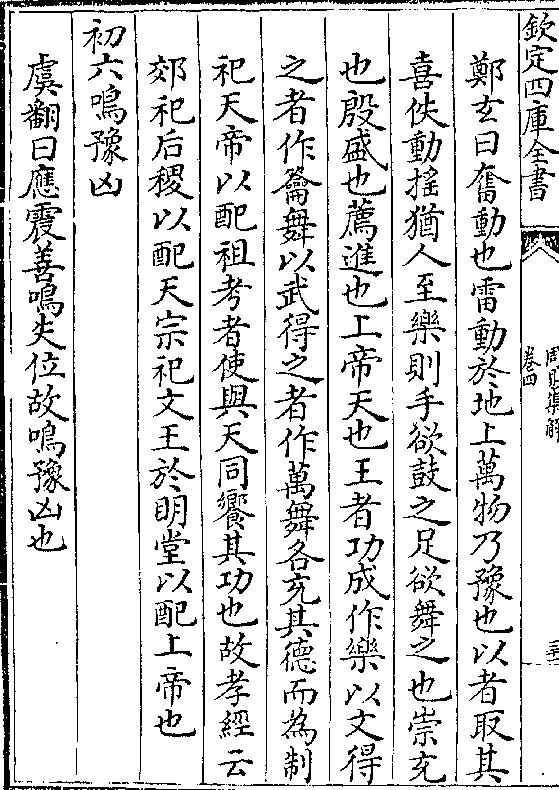 欽定四庫全書
卷四
鄭玄曰奮動也雷動於地上萬物乃豫也以者取其
喜佚動搖猶人至樂則手欲鼓之足欲舞之也崇充
也殷盛也薦進也上帝天也王者功成作樂以文得
之者作籥舞以武得之者作萬舞各充其德而為制
祀天帝以配祖考者使與天同饗其功也故孝經云
郊祀后稷以配天宗祀文王於明堂以配上帝也
初六鳴豫凶
虞翻曰應震善鳴失位故鳴豫凶也